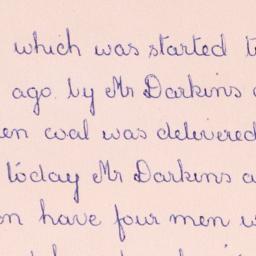 which was started
ago. by Mr Darkins
coal was delivered
today Mr Darkins
have four men